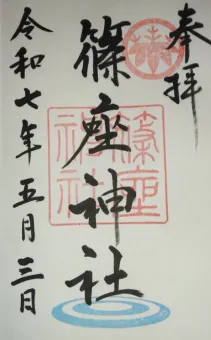 奉拝
篠座神社
篠座
神社
令和七年五月三日